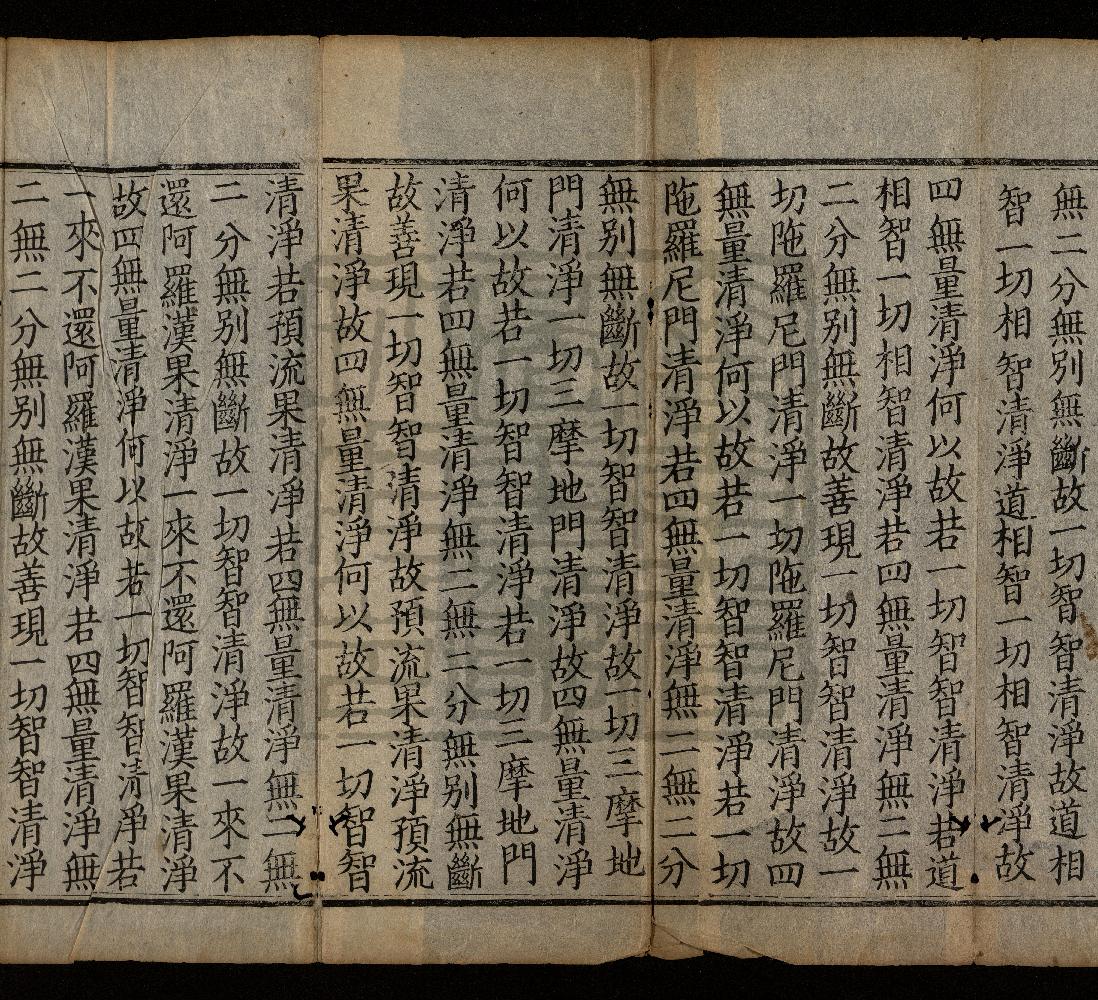 無二分無別無斷故一切智智清淨故道相
智一切相智清淨道相智一切相智清淨故
四無量清淨何以故若一切智智清淨若道
相智一切相智清淨若四無量清淨無二無
二分無別無斷故善現一切智智清淨故一
切陁羅尼門清淨一切陁羅尼門清淨故四
無量清淨何以故若一切智智清淨若一切
陁羅尼門清淨若四無量清淨無二無二分
無別無斷故一切智智清淨故一切三摩地
門清淨一切三摩地門清淨故四無量清淨
何以故若一切智智清淨若一切三摩地門
清淨若四無量清淨無二無二分無別無斷
故善現一切智智清淨故預流果清淨預流
果清淨故四無量清淨何以故若一切智智
清淨若預流果清淨若四無量清淨無二無
二分無別無斷故一切智智清淨故一來不
還阿羅漢果清淨一來不還阿羅漢果清淨
故四無量清淨何以故若一切智智清淨若
一來不還阿羅漢果清淨若四無量清淨無
二無二分無別無斷故善現一切智智清淨